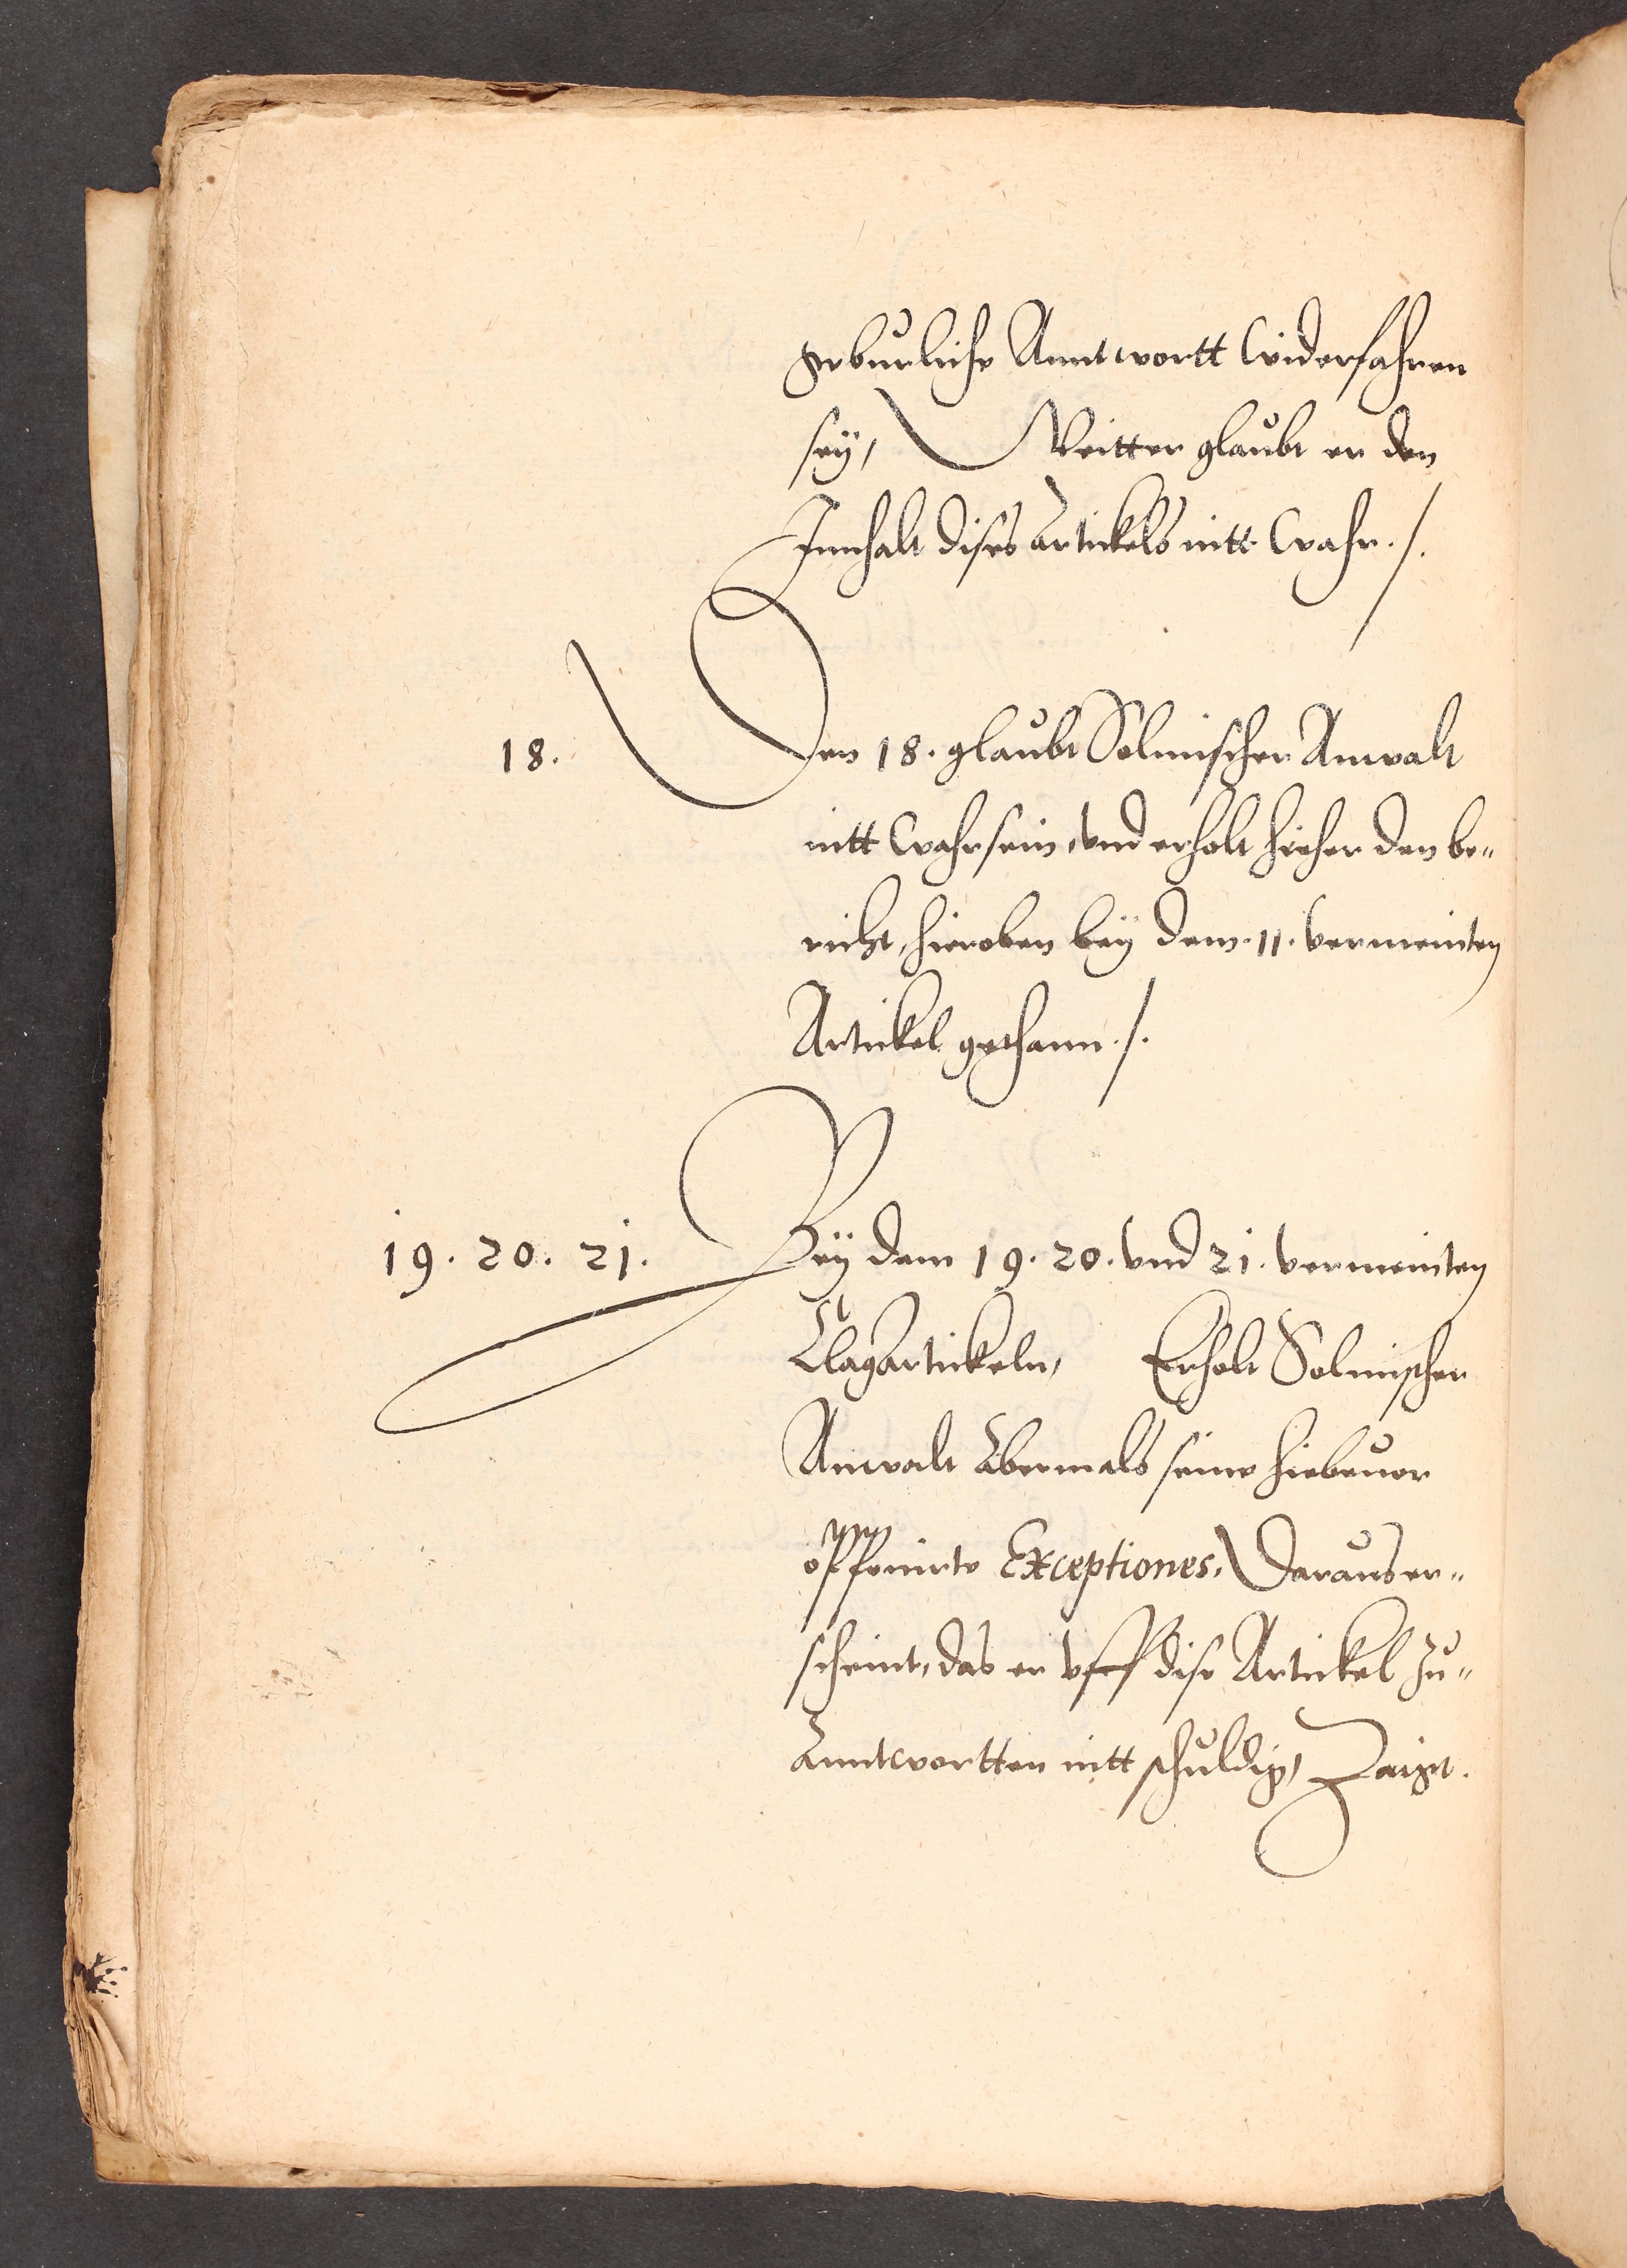 geburliche Anntwortt widerfahren
sey, Weitter glaubt er den
Innhalt dises Artickels nitt wahr ./.
18. Den 18. glaubt Solmischer Anwalt
nitt wahr sein, vnd erholt hieher den be„
richt, hieroben bey dem 11. vermeinten
Artickel gethann ./.
19. 20. 21. Bey dem 19. 20. vnd 21. vermeinten
Clagartickeln, Erholt Solmischer
Anwalt Abermals seine hiebeuor
opponirte Exceptiones, Daraus er„
scheint, das er vff dise Artickel zu„
Anntwortten nitt schuldig, Zaigt.